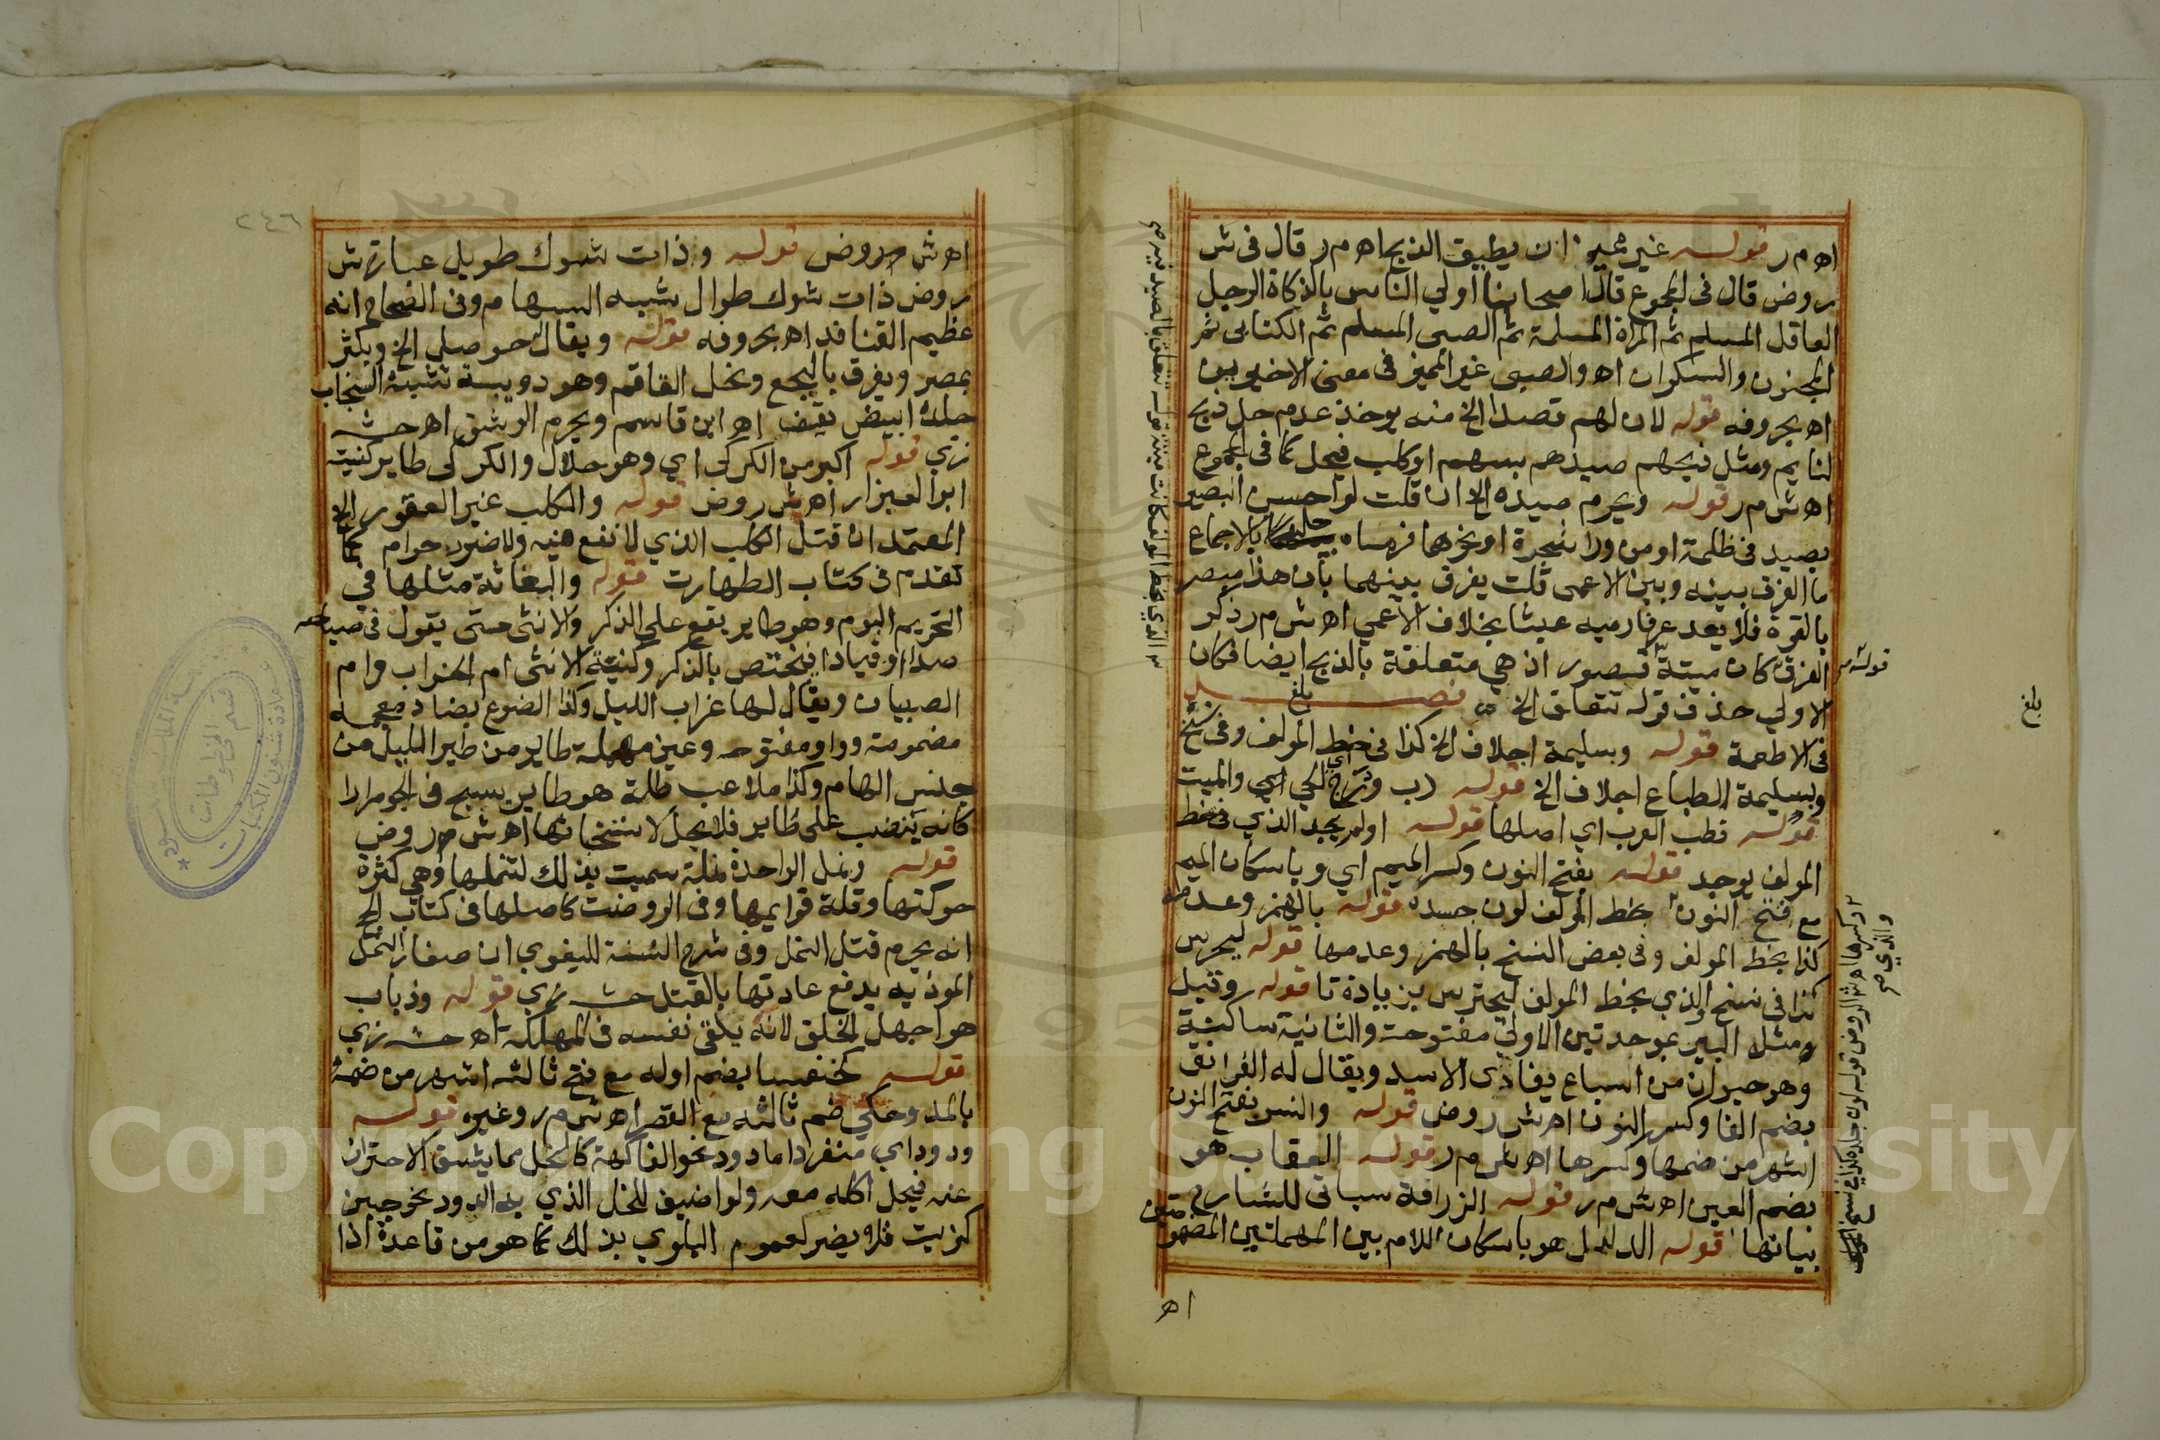 اه م ر قوله غير مميز ان يطيق الذبح اه م ر قال في ش
روض قال في المجموع قال اصحابنا اولي الناس بالذكاة الرجل
العاقل المسلم ثم المراة المسلمة ثم الصبي المسلم ثم الكتابي ثم
المجنون والسكران اه والصبي غير المميز في معني الاخيرين
اه بحروفه قوله لان لهم قصدا الخ منه يوخذ عدم حل ذبح
النايم ومثل ذبحهم صيدهم بسهم او كلب فيحل كما في المجموع
اه ش م ر قوله ويحرم صيده الخ ان قلت لو احس البصير
بصيد في ظلمة او من ورا شجرة او نحوهما فرماه حل بالاجماع
ما الفرق بينه وبين الاعمي قلت يفرق بينهما بان هذا مبصر
بالقوة فلا يعد عرفا رميه عبثا بخلاف الاعمي اه ش م ر ذكر
الفرق كان ميتة تصور اذ هي متعلقة بالذبح ايضا فكان
الاولي حذف قوله تتعلق الخ فصل
في الاطعمة قوله وسليمة اجلاف الخ كذا في خط المولف وفي نسخ
وسليمة الطباع اجلاف الخ قوله دب ودرج الحي اي والميت
قوله قطب العرب اي اصلها قوله اولم يجد الذي في خط
المولف يوجد قوله بفتح النون وكسر الميم اي وباسكان الميم
مع فتح النون بخط المولف لون جسده قوله بالهمز وعدمه
كذا بخط المولف وفي بعض النسخ بالهمز وعدمها قوله ليحرس
كذا في نسخ والذي بخط المولف ليحترس بزيادة تا قوله وقيل
ومثل الببر بموحدتين الاولي مفتوحة والثانية ساكنة
وهو حيوان من السباع يفادي الاسد ويقال له الفرانق
بضم الفا وكسر النون اه ش روض قوله والنس بفتح النون
اشهر من ضمها وكسرها اه ش م ر قوله العقاب هو
بضم العين اه ش م ر قوله الزرافة سياتي للشارح
بيانها قوله الدلدل هو باسكان اللام بين المهملتين المضمومتين
اه
بلغ
بلغ
اه ش روض قوله وذات شوك طويل عبارة ش
روض ذات شوك طوال يشبه السهام وفي الصحاح انه
عظيم القنافد اه بحروفه قوله ويقال حوصلي الخ ويكثر
بمصر ويعرف بالبجع وبحل القاقم وهو دويبة تشبه السنجاب
جلده ابيض يقق اه ابن قاسم ويحرم الوشق اه حش
زي قوله اكبر من الكركي اي وهو حلال والكركي طاير كنيته
ابو العيزار اه ش روض قوله والكلب غير العقور الخ
المعتمد ان قتل الكلب الذي لا نفع فيه ولا ضرر حرام كما
تقدم في كتاب الطهارت قوله والبغاثة مثلها في
التحريم البوم وهو طاير يقع علي الذكر والانثي حتي يقول في صياحه
صدا او فيادا فيختص بالذكر وكنية الانثي ام الخراب وام
الصبيان ويقال لها غراب الليل وكذا الضوع بضاد معجمه
مضمومة وواو مفتوحه وعين مهملة طاير من طير الليل من
جنس الهام وكذا ملاعب ظله هو طاير يسبح في الجو مرارا
كانه ينصب علي طاير فلا يحل لاستخباثها اه ش روض
قوله ونمل الواحدة نملة سميت بذلك لتنملها وهي كثرة
حركتها وقلة قوايمها وفي الروضة كاصلها في كتاب الحج
انه يحرم قتل النمل وفي شرح السنة للبغوي ان صغار النمل
الموذيه يدفع عاديتها بالقتل حش زي قوله وذباب
هو اجهل الخلق لانه يلقي نفسه في المهلكة اه حش زي
قوله كخنفسا بضم اوله مع فتح ثالثه اشهر من ضمه
بالمد وحكي ضم ثالثه مع القصر اه ش م ر وغيره قوله
ودود اي منفردا ما دود نحو الفاكهة كالخل مما يشق الاحتران
عنه فيحل اكله معه ولو اضيف للخل الذي به الدود نحو جبن
كزيت فلا يضر لعموم البلوي بذلك كما هو من قاعدة اذا
٢٤٦
قسم المخطوطات
Copyright © King Saud University